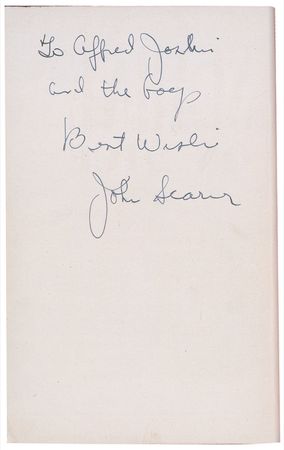 To Alfred
and the
Best Wishes
John Scarne